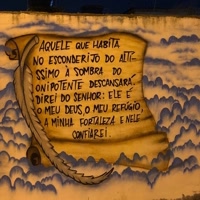 AQUELE QUE HABITA
NO ESCONDERIJO DO ALTÍ-
SSIMO À SOMBRA DO
ONIPOTENTE DESCANSARÁ.
DIREI DO SENHOR: ELE É
O MEU DEUS, O MEU REFÚGIO,
A MINHA FORTALEZA E NELE
CONFIAREI.